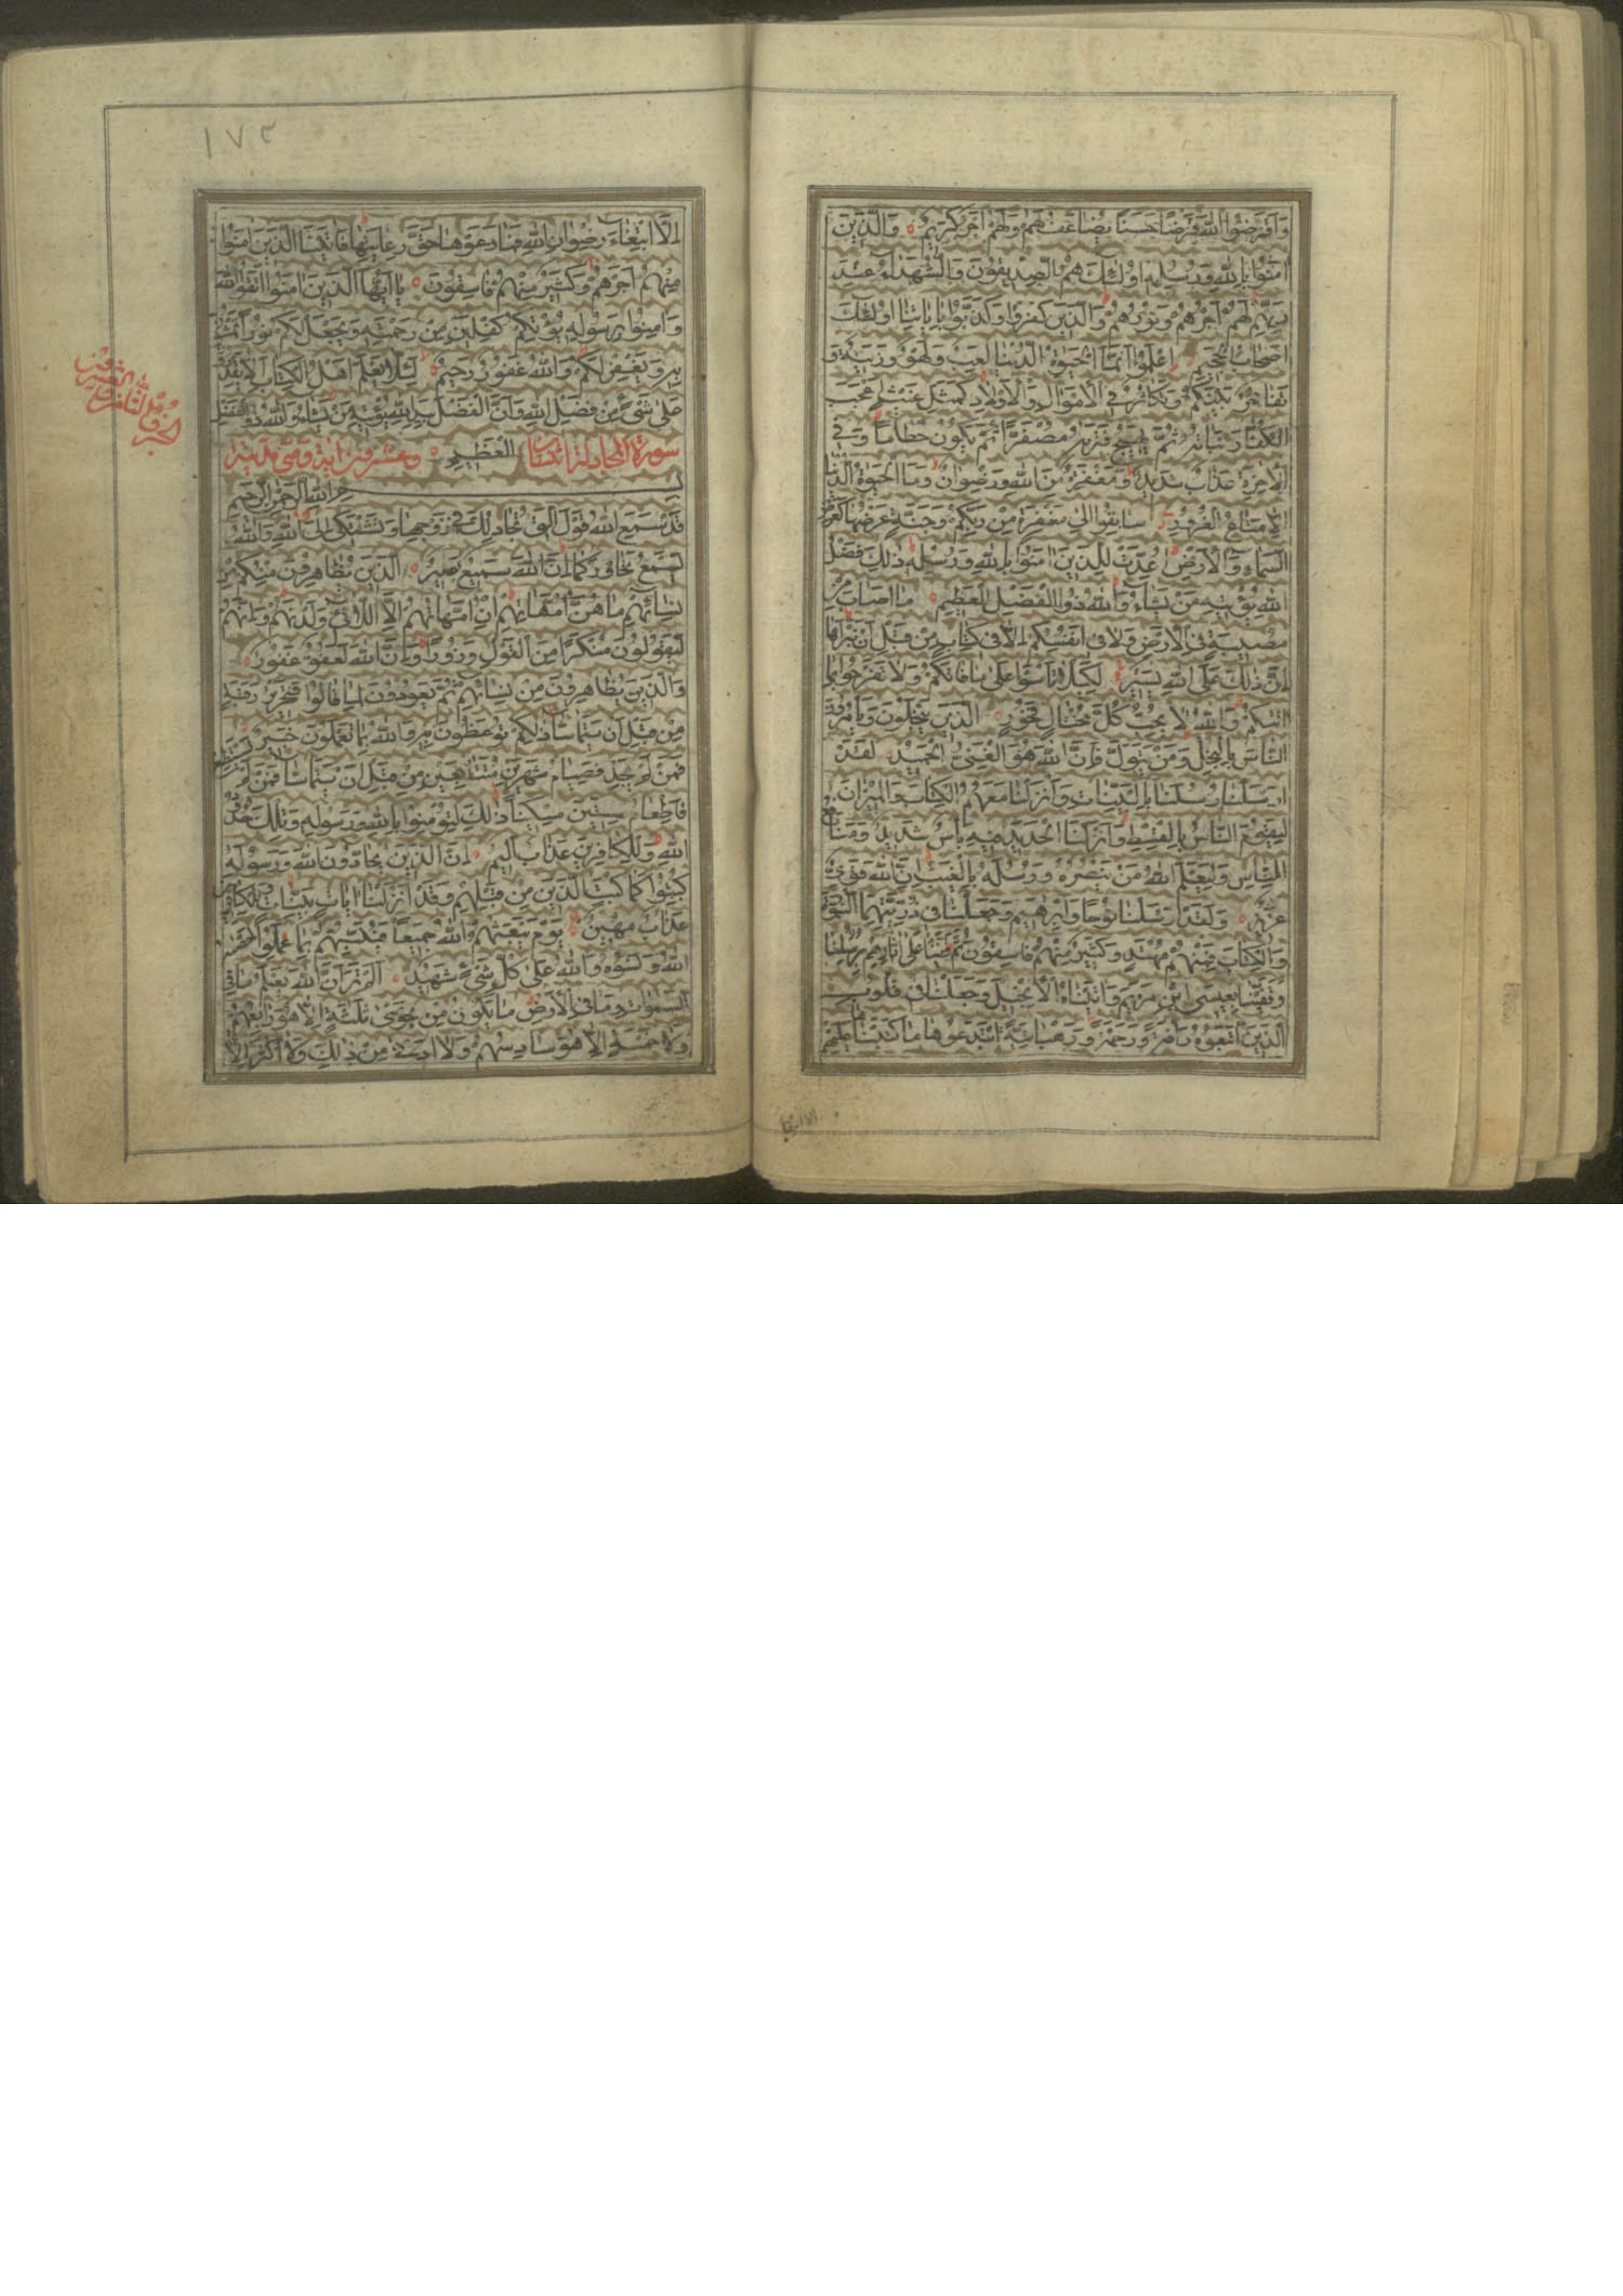 وَاَقْرَضُوا اللّٰهَ قَرْضًا حَسَنًا يُضَاعَفُ لَهُمْ وَلَهُمْ اَجْرٌ كَرِيمٌ وَالَّذِينَ
اٰمَنُوا بِاللّٰهِ وَرُسُلِهِ اُولٰئِكَ هُمُ الصِّدِّيقُونَ وَالشُّهَدَاءُ عِنْدَ
رَبِّهِمْ لَهُمْ اَجْرُهُمْ وَنُورُهُمْ وَالَّذِينَ كَفَرُوا وَكَذَّبُوا بِاٰيَاتِنَا اُولٰئِكَ
اَصْحَابُ الْجَحِيمِ اِعْلَمُوا اَنَّمَا الْحَيٰوةُ الدُّنْيَا لَعِبٌ وَلَهْوٌ وَزِينَةٌ وَ
تَفَاخُرٌ بَيْنَكُمْ وَتَكَاثُرٌ فِي الْاَمْوَالِ وَالْاَوْلَادِ كَمَثَلِ غَيْثٍ اَعْجَبَ
الْكُفَّارَ نَبَاتُهُ ثُمَّ يَهِيجُ فَتَرٰيهُ مُصْفَرًّا ثُمَّ يَكُونُ حُطَامًا وَفِي
الْاٰخِرَةِ عَذَابٌ شَدِيدٌ وَمَغْفِرَةٌ مِنَ اللّٰهِ وَرِضْوَانٌ وَمَا الْحَيٰوةُ الدُّنْيَا
اِلَّا مَتَاعُ الْغُرُورِ سَابِقُوا اِلٰى مَغْفِرَةٍ مِنْ رَبِّكُمْ وَجَنَّةٍ عَرْضُهَا كَعَرْضِ
السَّمَاءِ وَالْاَرْضِ اُعِدَّتْ لِلَّذِينَ اٰمَنُوا بِاللّٰهِ وَرُسُلِهِ ذٰلِكَ فَضْلُ
اللّٰهِ يُؤْتِيهِ مَنْ يَشَاءُ وَاللّٰهُ ذُو الْفَضْلِ الْعَظِيمِ مَا اَصَابَ مِنْ
مُصِيبَةٍ فِي الْاَرْضِ وَلَا فِي اَنْفُسِكُمْ اِلَّا فِي كِتَابٍ مِنْ قَبْلِ اَنْ نَبْرَاَهَا
اِنَّ ذٰلِكَ عَلَى اللّٰهِ يَسِيرٌ لِكَيْلَا تَاْسَوْا عَلٰى مَا فَاتَكُمْ وَلَا تَفْرَحُوا بِمَا
اٰتٰيكُمْ وَاللّٰهُ لَا يُحِبُّ كُلَّ مُخْتَالٍ فَخُورٍ الَّذِينَ يَبْخَلُونَ وَيَاْمُرُونَ
النَّاسَ بِالْبُخْلِ وَمَنْ يَتَوَلَّ فَاِنَّ اللّٰهَ هُوَ الْغَنِيُّ الْحَمِيدُ لَقَدْ
اَرْسَلْنَا رُسُلَنَا بِالْبَيِّنَاتِ وَاَنْزَلْنَا مَعَهُمُ الْكِتَابَ وَالْمِيزَانَ
لِيَقُومَ النَّاسُ بِالْقِسْطِ وَاَنْزَلْنَا الْحَدِيدَ فِيهِ بَاْسٌ شَدِيدٌ وَمَنَافِعُ
لِلنَّاسِ وَلِيَعْلَمَ اللّٰهُ مَنْ يَنْصُرُهُ وَرُسُلَهُ بِالْغَيْبِ اِنَّ اللّٰهَ قَوِيٌّ
عَزِيزٌ وَلَقَدْ اَرْسَلْنَا نُوحًا وَاِبْرٰهِيمَ وَجَعَلْنَا فِي ذُرِّيَّتِهِمَا النُّبُوَّةَ
وَالْكِتَابَ فَمِنْهُمْ مُهْتَدٍ وَكَثِيرٌ مِنْهُمْ فَاسِقُونَ ثُمَّ قَفَّيْنَا عَلٰى اٰثَارِهِمْ بِرُسُلِنَا
وَقَفَّيْنَا بِعِيسَى ابْنِ مَرْيَمَ وَاٰتَيْنَاهُ الْاِنْجِيلَ وَجَعَلْنَا فِي قُلُوبِ
الَّذِينَ اتَّبَعُوهُ رَاْفَةً وَرَحْمَةً وَرَهْبَانِيَّةً ابْتَدَعُوهَا مَا كَتَبْنَاهَا عَلَيْهِمْ
١٧٣
اِلَّا ابْتِغَاءَ رِضْوَانِ اللّٰهِ فَمَا رَعَوْهَا حَقَّ رِعَايَتِهَا فَاٰتَيْنَا الَّذِينَ اٰمَنُوا
مِنْهُمْ اَجْرَهُمْ وَكَثِيرٌ مِنْهُمْ فَاسِقُونَ يَا اَيُّهَا الَّذِينَ اٰمَنُوا اتَّقُوا اللّٰهَ
وَاٰمِنُوا بِرَسُولِهِ يُؤْتِكُمْ كِفْلَيْنِ مِنْ رَحْمَتِهِ وَيَجْعَلْ لَكُمْ نُورًا تَمْشُونَ
بِهِ وَيَغْفِرْ لَكُمْ وَاللّٰهُ غَفُورٌ رَحِيمٌ لِئَلَّا يَعْلَمَ اَهْلُ الْكِتَابِ اَلَّا يَقْدِرُونَ
عَلٰى شَيْءٍ مِنْ فَضْلِ اللّٰهِ وَاَنَّ الْفَضْلَ بِيَدِ اللّٰهِ يُؤْتِيهِ مَنْ يَشَاءُ وَاللّٰهُ ذُو الْفَضْلِ
سورة المجادلة اثنتان الْعَظِيمِ وعشرون اية وهى مدنية
بِسْمِ اللّٰهِ الرَّحْمٰنِ الرَّحِيمِ
قَدْ سَمِعَ اللّٰهُ قَوْلَ الَّتِي تُجَادِلُكَ فِي زَوْجِهَا وَتَشْتَكِي اِلَى اللّٰهِ وَاللّٰهُ
يَسْمَعُ تَحَاوُرَكُمَا اِنَّ اللّٰهَ سَمِيعٌ بَصِيرٌ الَّذِينَ يُظَاهِرُونَ مِنْكُمْ مِنْ
نِسَائِهِمْ مَا هُنَّ اُمَّهَاتِهِمْ اِنْ اُمَّهَاتُهُمْ اِلَّا اللَّائِي وَلَدْنَهُمْ وَاِنَّهُمْ
لَيَقُولُونَ مُنْكَرًا مِنَ الْقَوْلِ وَزُورًا وَاِنَّ اللّٰهَ لَعَفُوٌّ غَفُورٌ
وَالَّذِينَ يُظَاهِرُونَ مِنْ نِسَائِهِمْ ثُمَّ يَعُودُونَ لِمَا قَالُوا فَتَحْرِيرُ رَقَبَةٍ
مِنْ قَبْلِ اَنْ يَتَمَاسَّا ذٰلِكُمْ تُوعَظُونَ بِهِ وَاللّٰهُ بِمَا تَعْمَلُونَ خَبِيرٌ
فَمَنْ لَمْ يَجِدْ فَصِيَامُ شَهْرَيْنِ مُتَتَابِعَيْنِ مِنْ قَبْلِ اَنْ يَتَمَاسَّا فَمَنْ لَمْ يَسْتَطِعْ
فَاِطْعَامُ سِتِّينَ مِسْكِينًا ذٰلِكَ لِتُؤْمِنُوا بِاللّٰهِ وَرَسُولِهِ وَتِلْكَ حُدُودُ
اللّٰهِ وَلِلْكَافِرِينَ عَذَابٌ اَلِيمٌ اِنَّ الَّذِينَ يُحَادُّونَ اللّٰهَ وَرَسُولَهُ
كُبِتُوا كَمَا كُبِتَ الَّذِينَ مِنْ قَبْلِهِمْ وَقَدْ اَنْزَلْنَا اٰيَاتٍ بَيِّنَاتٍ وَلِلْكَافِرِينَ
عَذَابٌ مُهِينٌ يَوْمَ يَبْعَثُهُمُ اللّٰهُ جَمِيعًا فَيُنَبِّئُهُمْ بِمَا عَمِلُوا اَحْصٰيهُ
اللّٰهُ وَنَسُوهُ وَاللّٰهُ عَلٰى كُلِّ شَيْءٍ شَهِيدٌ اَلَمْ تَرَ اَنَّ اللّٰهَ يَعْلَمُ مَا فِي
السَّمٰوَاتِ وَمَا فِي الْاَرْضِ مَا يَكُونُ مِنْ نَجْوٰى ثَلٰثَةٍ اِلَّا هُوَ رَابِعُهُمْ
وَلَا خَمْسَةٍ اِلَّا هُوَ سَادِسُهُمْ وَلَا اَدْنٰى مِنْ ذٰلِكَ وَلَا اَكْثَرَ اِلَّا